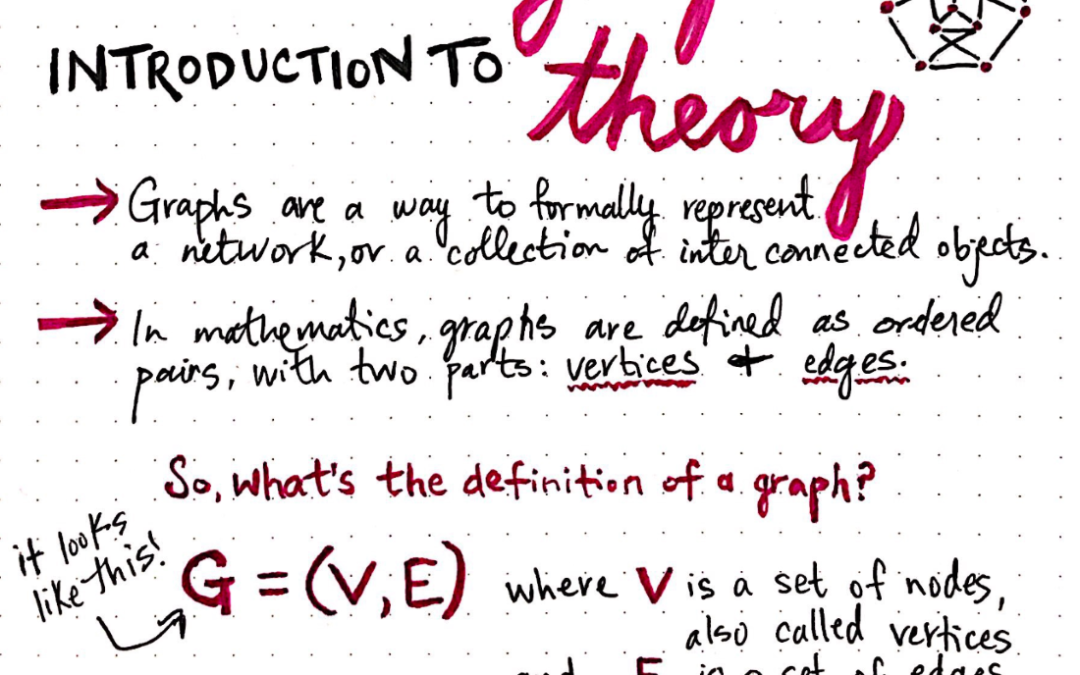 INTRODUCTION TO
theory
→ Graphs are a way to formally represent
a network, or a collection of inter connected objects.
→ In mathematics, graphs are defined as ordered
pairs, with two parts: vertices + edges.
So, what's the definition of a graph?
it looks
like this!
G = (V, E) where V is a set of nodes,
also called vertices
and E is a set of edges